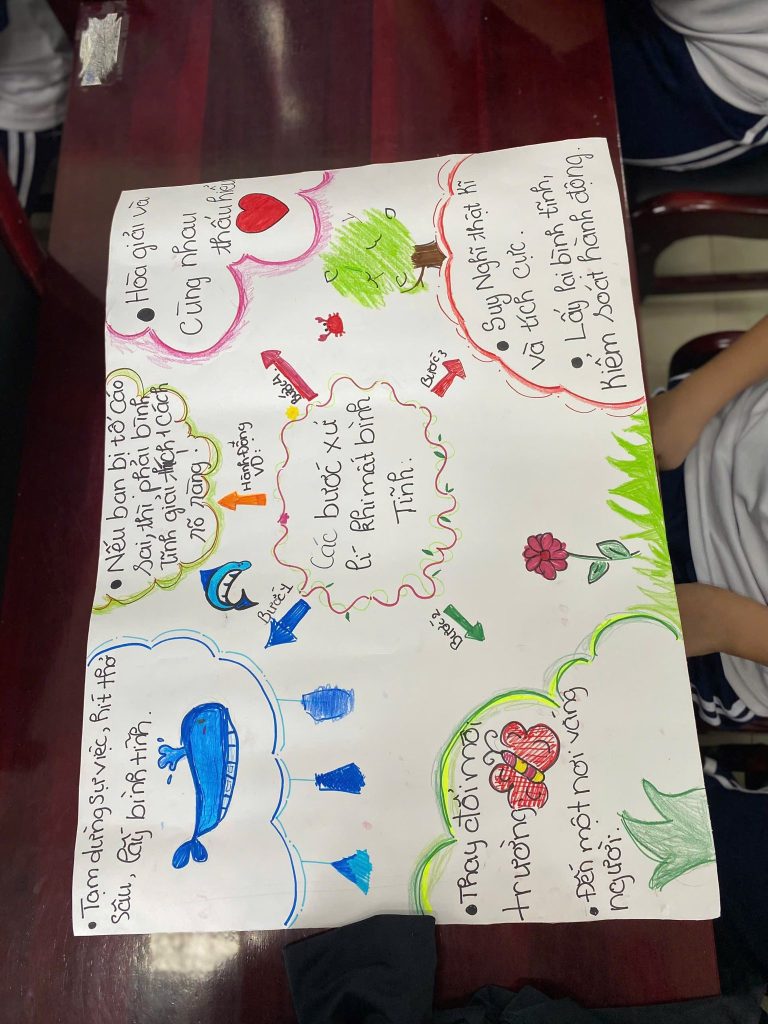 Các bước xử
lí khi mất bình
Tĩnh.
Bước 1
• Tạm dừng sự việc, hít thở
sâu, lấy bình tĩnh.
Bước 2
• Thay đổi môi
trường
• Đến một nơi vắng
người.
Bước 3
• Suy Nghĩ thật kĩ
và tích cực.
• Lấy lại bình tĩnh,
kiểm soát hành động.
Bước 4
• Hòa giải và
cùng nhau
thấu hiểu
Hành động
VD:
• Nếu bạn bị tố cáo
sai, thì phải bình
Tĩnh giải thích 1 cách
rõ ràng!